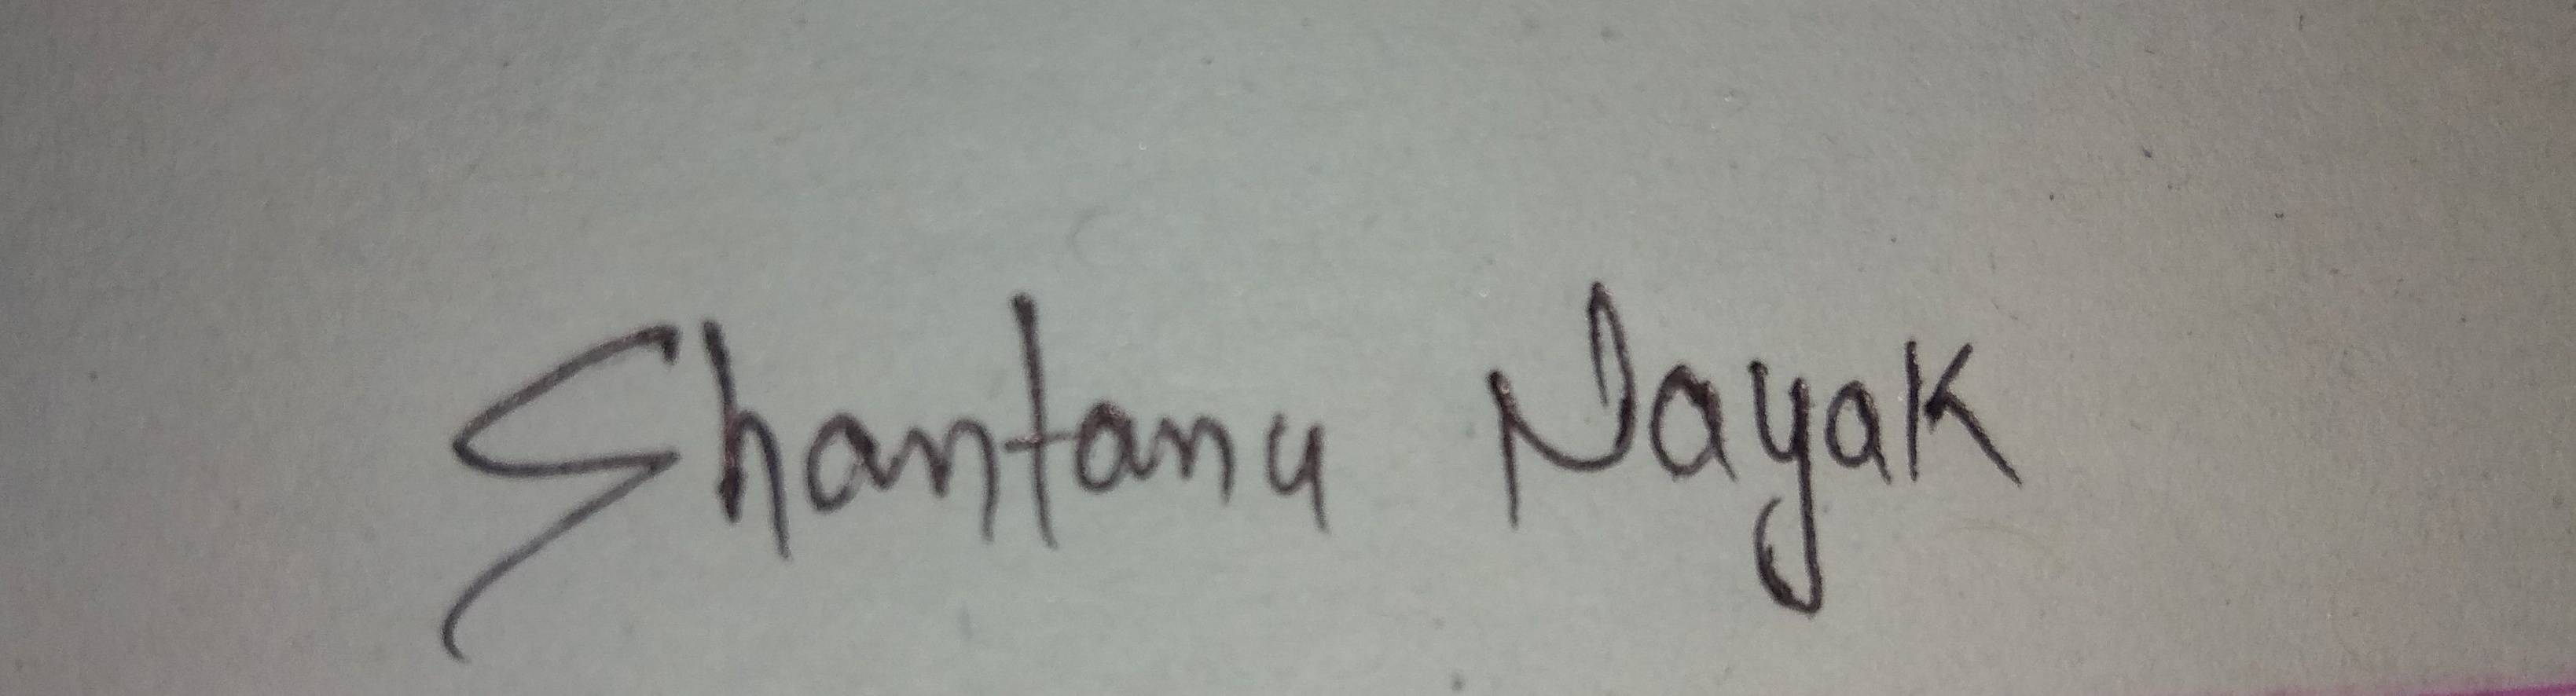 Shantanu Nayak